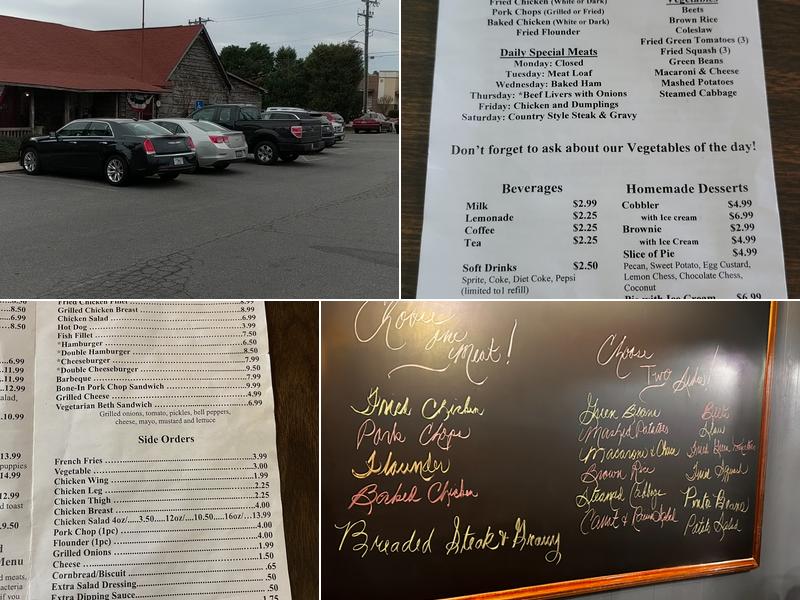 Fried Chicken (White or Dark)
Pork Chops (Grilled or Fried)
Baked Chicken (White or Dark)
Fried Flounder
Daily Special Meats
Monday: Closed
Tuesday: Meat Loaf
Wednesday: Baked Ham
Thursday: *Beef Livers with Onions
Friday: Chicken and Dumplings
Saturday: Country Style Steak & Gravy
Vegetables
Beets
Brown Rice
Coleslaw
Fried Green Tomatoes (3)
Fried Squash (3)
Green Beans
Macaroni & Cheese
Mashed Potatoes
Steamed Cabbage
Don't forget to ask about our Vegetables of the day!
Beverages
Milk $2.99
Lemonade $2.25
Coffee $2.25
Tea $2.25
Soft Drinks $2.50
Sprite, Coke, Diet Coke, Pepsi
(limited to1 refill)
Homemade Desserts
Cobbler $4.99
with Ice cream $6.99
Brownie $2.99
with Ice Cream $4.99
Slice of Pie $4.99
Pecan, Sweet Potato, Egg Custard,
Lemon Chess, Chocolate Chess,
Coconut
Pie with Ice Cream $6.99
6.99
8.50
6.99
11.99
12.99
10.99
13.99
14.99
12.99
9.50
Menu
Fried Chicken Fillet 8.99
Grilled Chicken Breast 8.99
Chicken Salad 6.99
Hot Dog 3.99
Fish Fillet 7.50
*Hamburger 6.50
*Double Hamburger 8.50
*Cheeseburger 7.99
*Double Cheeseburger 9.50
Barbeque 7.99
Bone-In Pork Chop Sandwich 9.99
Grilled Cheese 4.99
Vegetarian Beth Sandwich 6.99
Grilled onions, tomato, pickles, bell peppers,
cheese, mayo, mustard and lettuce
Side Orders
French Fries 3.99
Vegetable 3.00
Chicken Wing 1.99
Chicken Leg 2.25
Chicken Thigh 2.25
Chicken Breast 4.00
Chicken Salad 4oz/.....3.50.....12oz/....10.50....16oz/...13.99
Pork Chop (1pc) 4.00
Flounder (1pc) 4.00
Grilled Onions 1.99
Cheese 1.50
Cornbread/Biscuit .65
Extra Salad Dressing .50
Extra Dipping Sauce .50
1.75
Choose
one
Meat!
Fried Chicken
Pork Chops
Flounder
Baked Chicken
Breaded Steak & Gravy
Choose
Two Sides!
Green Beans
Mashed Potatoes
Macaroni & Cheese
Brown Rice
Steamed Cabbage
Carrot & Raisin Salad
Beets
Slaw
Fried Green Tomatoes
Fried Squash
Pinto Beans
Potato Salad